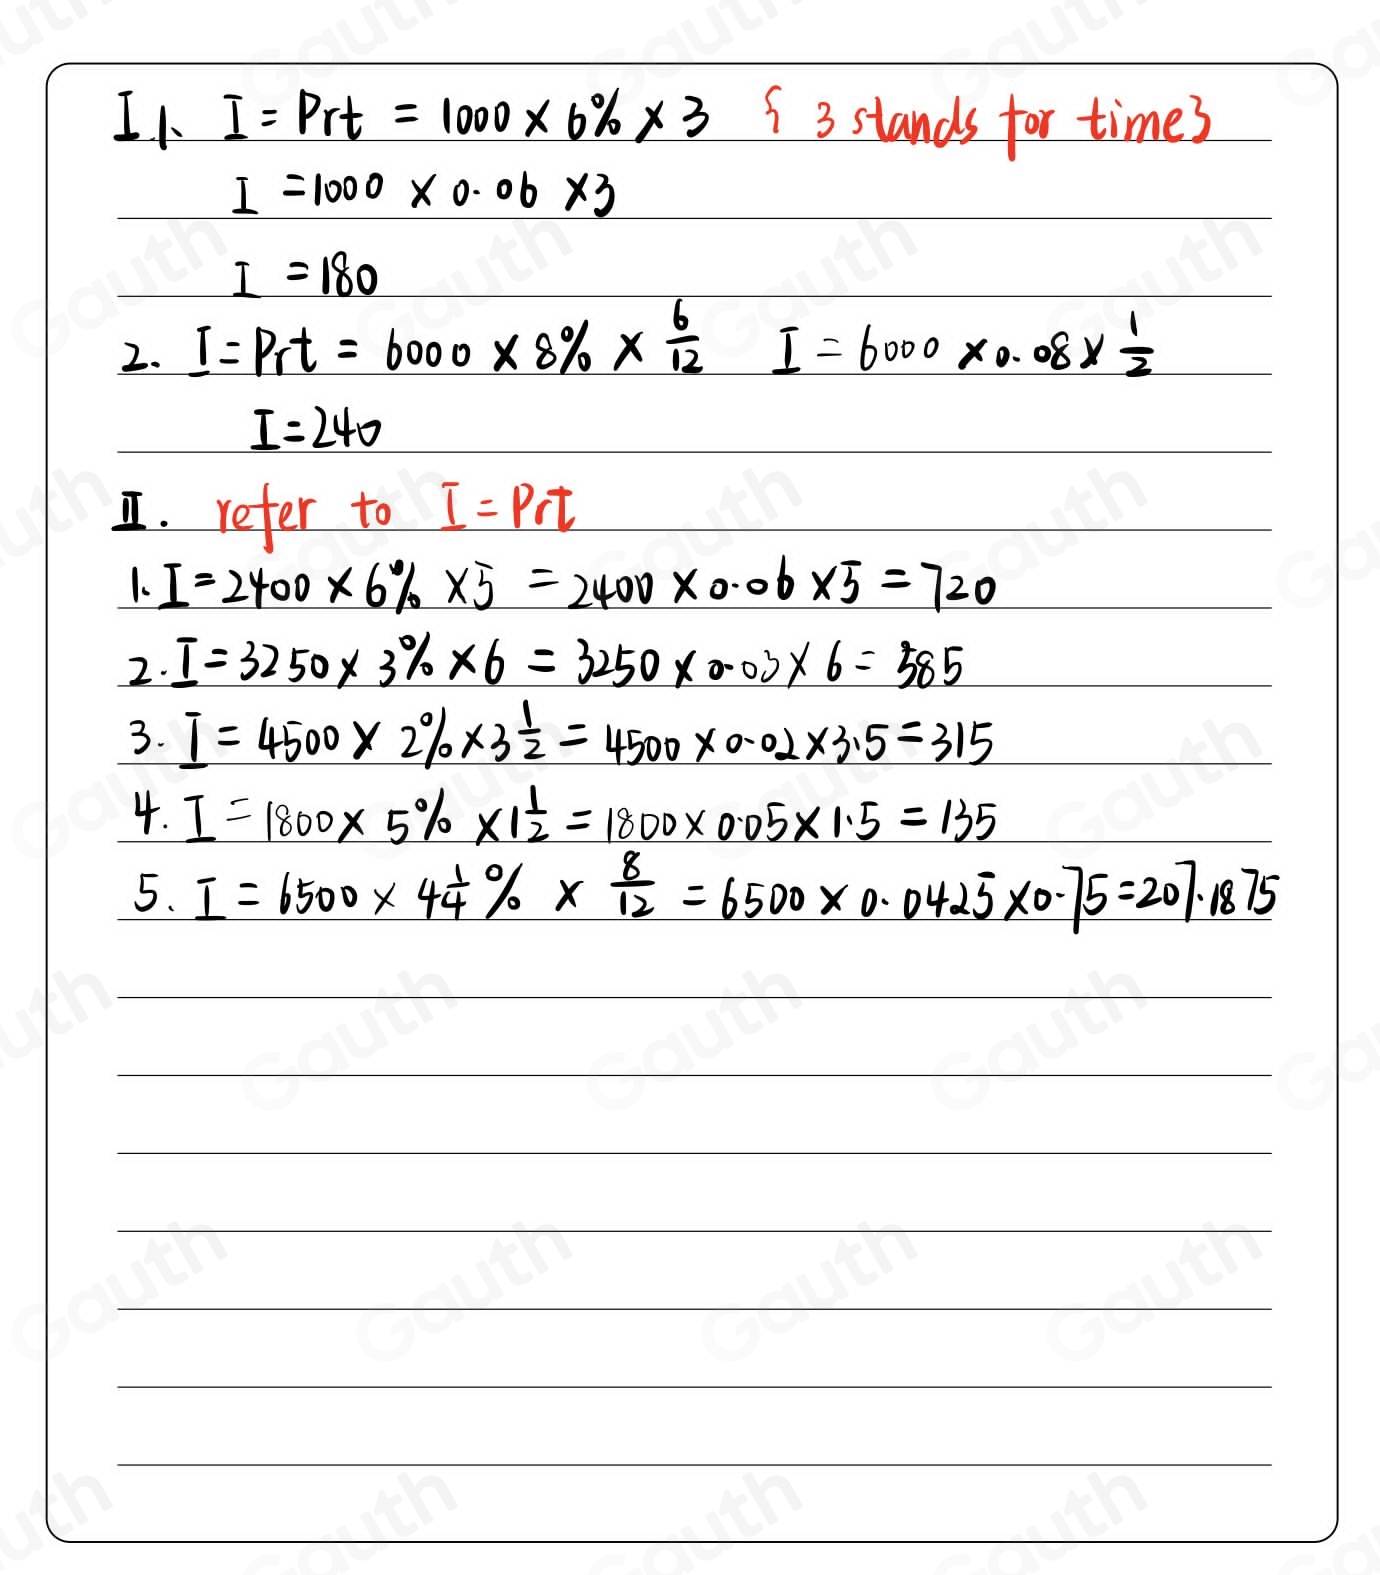 I 1、 I = Prt = 1000 × 6% × 3 { 3 stands for time}
I = 1000 × 0.06 × 3
I = 180
2. I = Prt = 6000 × 8% × 6/12 I = 6000 × 0.08 × 1/2
I = 240
II. refer to I = Prt
1. I = 2400 × 6% × 5 = 2400 × 0.06 × 5 = 720
2. I = 3250 × 3% × 6 = 3250 × 0.03 × 6 = 585
3. I = 4500 × 2% × 3 1/2 = 4500 × 0.02 × 3.5 = 315
4. I = 1800 × 5% × 1 1/2 = 1800 × 0.05 × 1.5 = 135
5、 I = 6500 × 4 1/4 % × 8/12 = 6500 × 0.0425 × 0.75 = 207.1875
Gauth